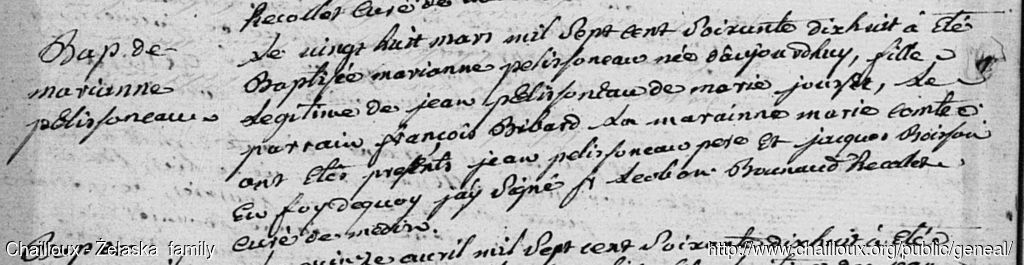 Recollet Curé de
Bap. de
marianne
pelissoneau
Le vingt huit mars mil Sept cent Soixante dixhuit à Eté
Baptisée marianne pelissoneau née d'aujourdhuy, fille
Legitime de jean pelissoneau de marie jousse, Le
parrain françois Bibard La marainne marie Comte
ont Etés presents jean pelissoneau pere Et jacques Boisson
En foy dequoy j'ay Signé fr Bonnaud Recolet
Curé de
avril mil Sept cent Soixante dixhuit à été
Chailloux - Żelaska family
http://www.chailloux.org/public/geneal/